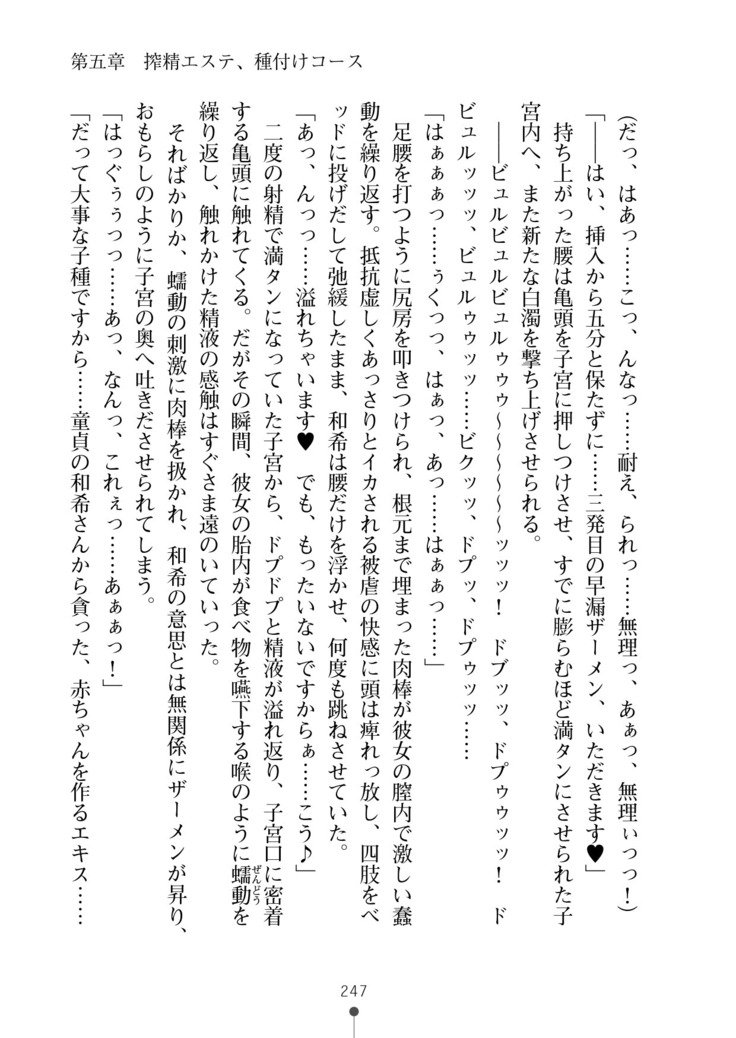 第五章　搾精エステ、種付けコース
(だっ、はあっ……こっ、んなっ……耐え、られっ……無理っ、あぁっ、無理ぃっっ！)
「――はい、挿入から五分と保たずに……三発目の早漏ザーメン、いただきます♥」
　持ち上がった腰は亀頭を子宮に押しつけさせ、すでに膨らむほど満タンにさせられた子
宮内へ、また新たな白濁を撃ち上げさせられる。
　――ビュルビュルビュルゥゥゥ～～～～～～ッッッ！　ドブッッ、ドプゥゥッッ！　ド
ビュルッッッ、ビュルゥゥッッ……ビクッッ、ドプッ、ドプゥッッ……
「はぁぁぁっ……ぅくっっ、はぁっ、あっ……はぁぁっ……」
　足腰を打つように尻房を叩きつけられ、根元まで埋まった肉棒が彼女の膣内で激しい蠢
動を繰り返す。抵抗虚しくあっさりとイカされる被虐の快感に頭は痺れっ放し、四肢をベ
ッドに投げだして弛緩したまま、和希は腰だけを浮かせ、何度も跳ねさせていた。
「あっ、んっっ……溢れちゃいます♥　でも、もったいないですからぁ……こう♪」
　二度の射精で満タンになっていた子宮から、ドプドプと精液が溢れ返り、子宮口に密着
する亀頭に触れてくる。だがその瞬間、彼女の胎内が食べ物を嚥下する喉のように蠕動を
ぜんどう
繰り返し、触れかけた精液の感触はすぐさま遠のいていった。
　そればかりか、蠕動の刺激に肉棒を扱かれ、和希の意思とは無関係にザーメンが昇り、
おもらしのように子宮の奥へ吐きださせられてしまう。
「はっぐぅぅっっ……あっ、なんっ、これぇっ……あぁぁっ！」
「だって大事な子種ですから……童貞の和希さんから貪った、赤ちゃんを作るエキス……
247